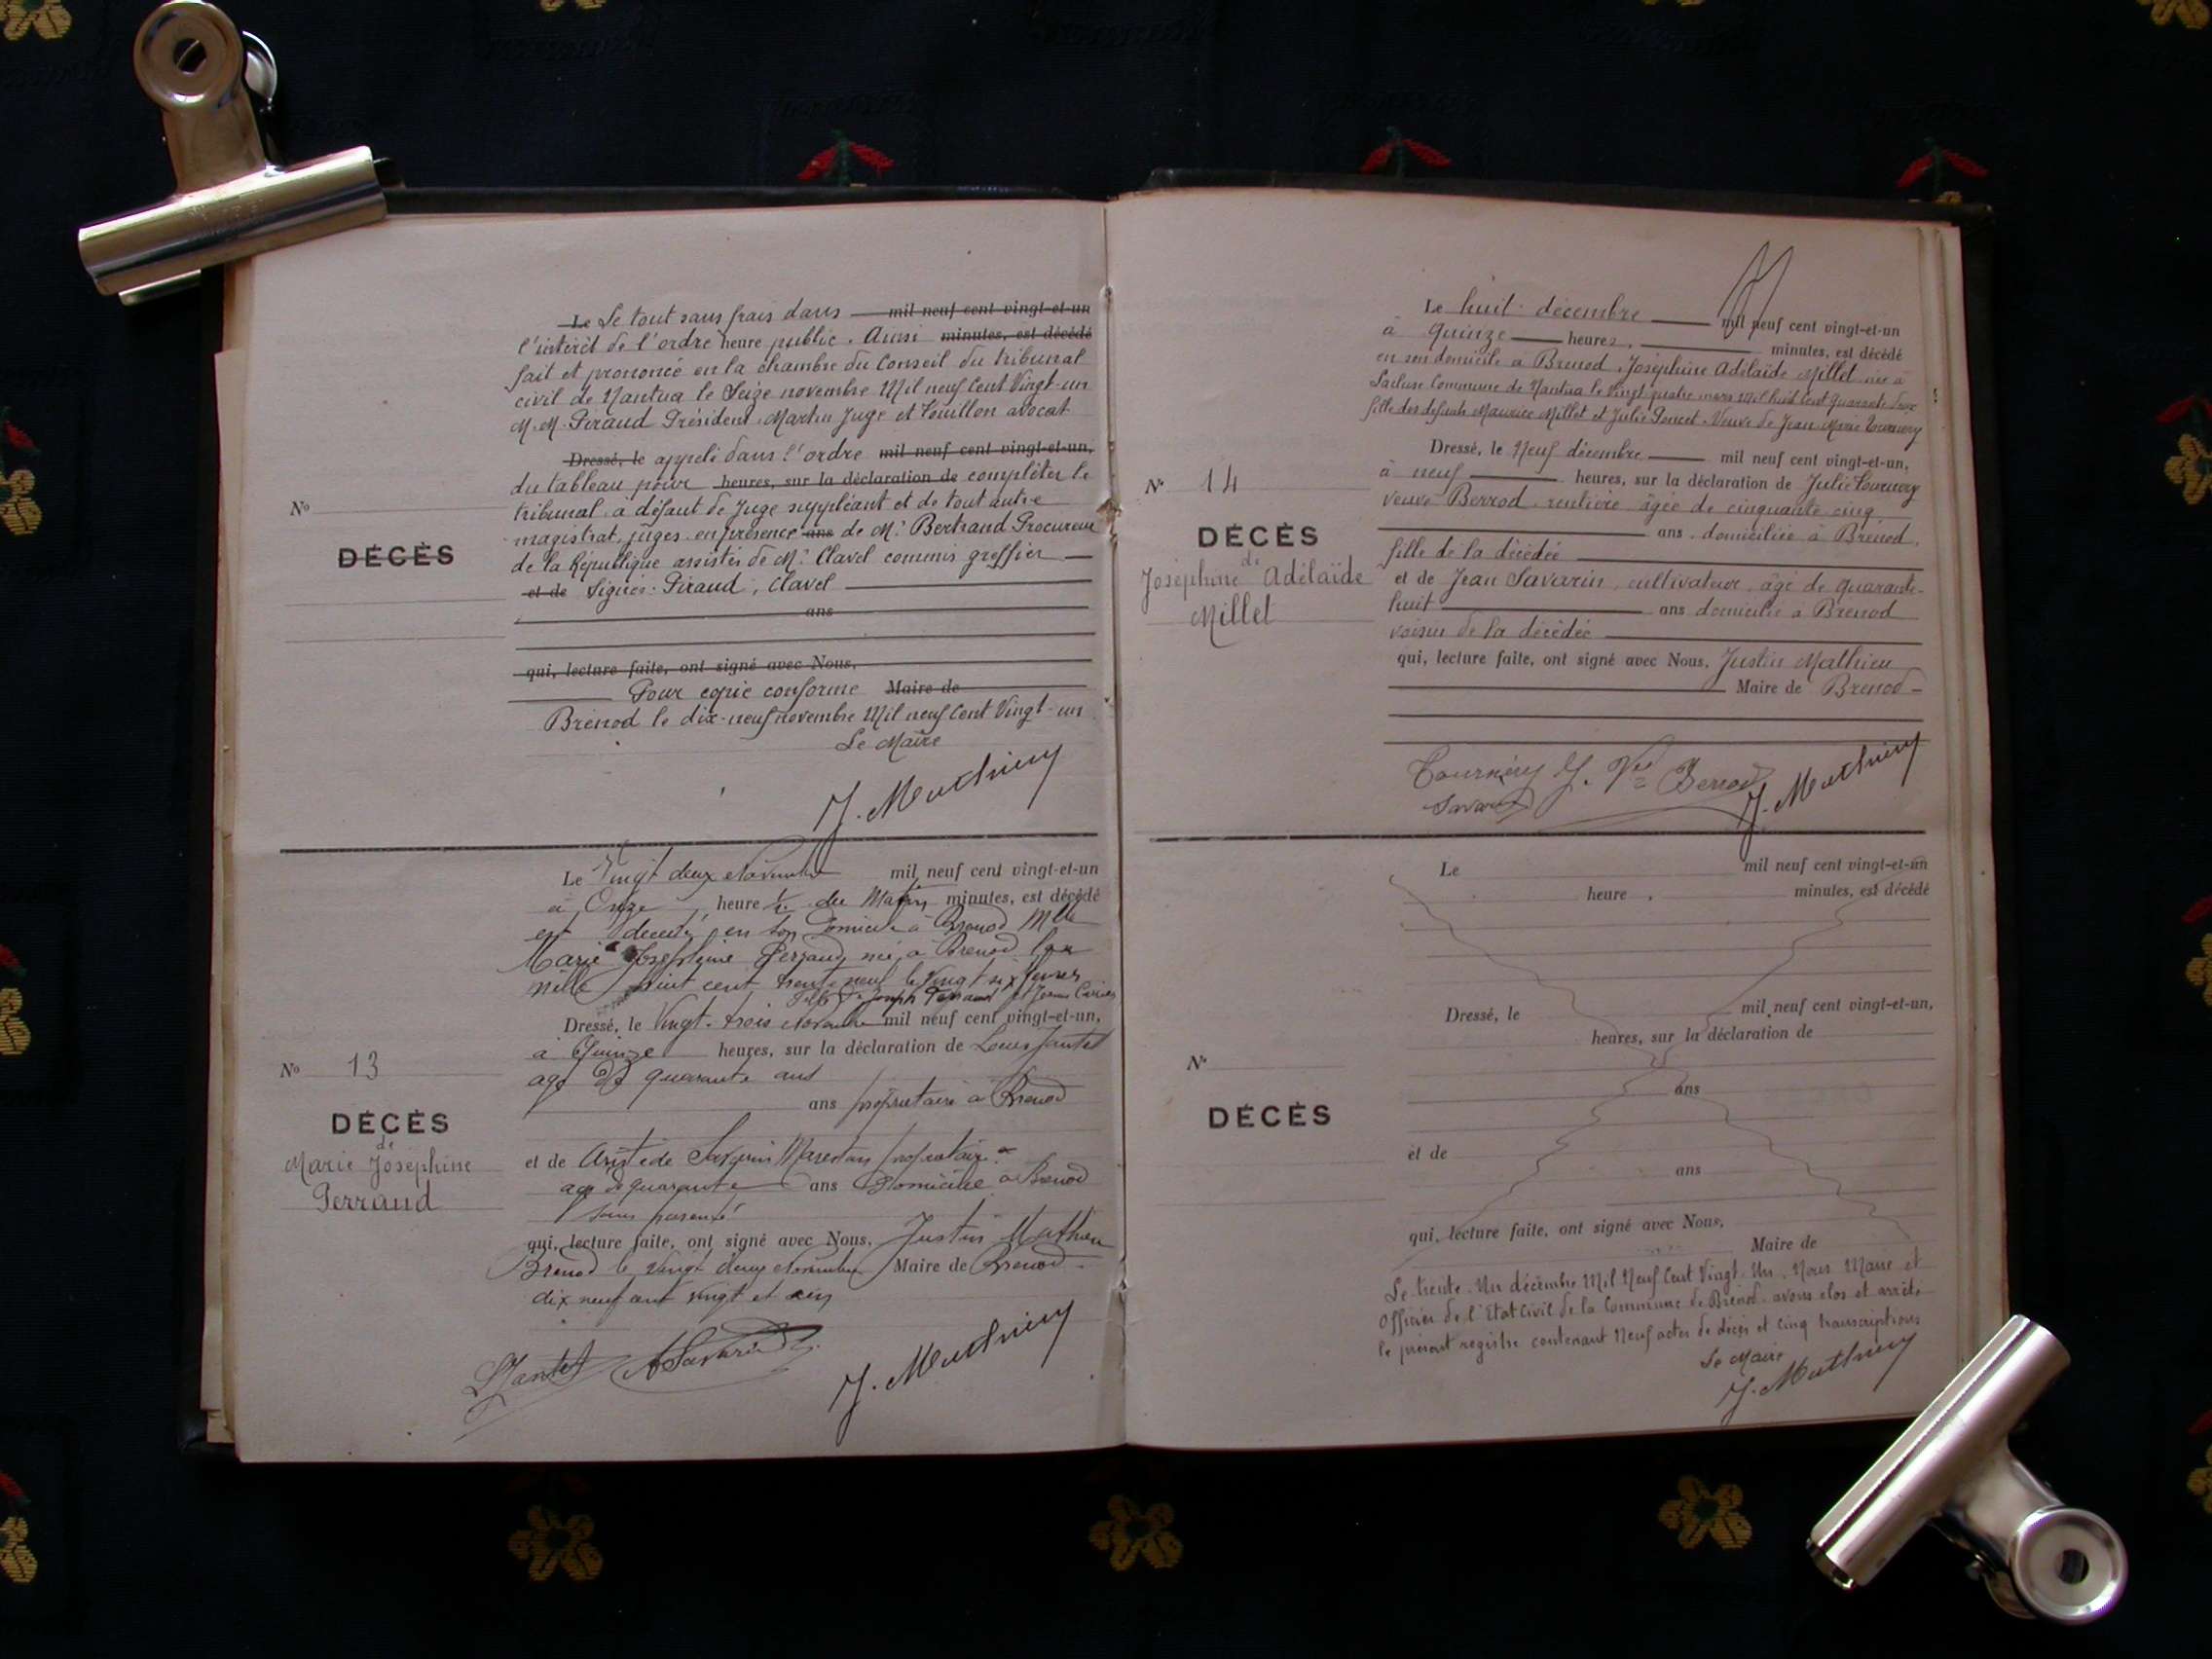 Le Le tout sans frais dans mil neuf cent vingt-et-un
l'intérêt de l'ordre heure public. Ainsi minutes, est décédé
fait et prononcé en la chambre du Conseil du tribunal
civil de Nantua le Seize novembre Mil neuf Cent Vingt-un
M.M. Piraud Président, Martin Juge et Touillon avocat
Dressé, le appelé dans l'ordre mil neuf cent vingt-et-un,
du tableau pour heures, sur la déclaration de compléter le
tribunal à défaut de Juge suppléant et de tout autre
magistrat, juges en présence ans de Mr. Bertrand Procureur
de la République assistés de Mr. Clavel commis greffier
et de Signés: Piraud, Clavel
ans
qui, lecture faite, ont signé avec Nous,
Pour copie conforme Maire de
Brénod le dix-neuf novembre Mil neuf Cent Vingt-un
Le Maire
J. Mathieu
No
DÉCÈS
Le Vingt deux Novembre mil neuf cent vingt-et-un
à Onze heure 1/2 du Matin minutes, est décédé
est décédé en son Domicile à Brenod Mlle
Marie Josephine Perraud né à Brenod
mille huit cent trente neuf le Vingt six
Fille de Joseph Perraud et
Dressé, le Vingt-trois Novembre mil neuf cent vingt-et-un,
à Quinze heures, sur la déclaration de Louis Jantet
agé de quarante ans
ans propriétaire à Brenod
et de Aristide Savarin propriétaire
agé de quarante ans Domicilié à Brenod
sans parenté
qui, lecture faite, ont signé avec Nous, Justin Mathieu
Brenod le Vingt deux Novembre Maire de Brenod
dix neuf cent vingt et un
L Jantet A Savarin
J. Mathieu
No 13
DÉCÈS
de
Marie Joséphine
Perraud
Le huit décembre mil neuf cent vingt-et-un
à Quinze heures, minutes, est décédé
en son domicile à Brenod, Joséphine Adélaïde Millet née à
Lacluse Commune de Nantua le Vingt quatre mars Mil huit Cent Quarante deux
fille des défunts Maurice Millet et Julie Poncet. Veuve de Jean Marie Tournery
Dressé, le Neuf décembre mil neuf cent vingt-et-un,
à neuf heures, sur la déclaration de Julie Tournery
veuve Berrod, rentière âgée de cinquante cinq
ans, domiciliée à Brénod,
fille de la décédée
et de Jean Savarin, cultivateur, âgé de quarante-
huit ans domicilié à Brénod
voisin de la décédée
qui, lecture faite, ont signé avec Nous, Justin Mathieu
Maire de Brenod
Tournery J. Vve Berrod
Savarin J. Mathieu
No 14
DÉCÈS
de
Joséphine Adélaïde
Millet
Le mil neuf cent vingt-et-un
heure , minutes, est décédé
Dressé, le mil neuf cent vingt-et-un,
heures, sur la déclaration de
ans
et de
ans
qui, lecture faite, ont signé avec Nous,
Maire de
No
DÉCÈS
Le trente-Un décembre Mil Neuf Cent Vingt-Un, Nous Maire et
Officier de l'Etat Civil de la Commune de Brénod avons clos et arrêté
le présent registre contenant Neuf actes de décès et cinq transcriptions
Le Maire
J. Mathieu